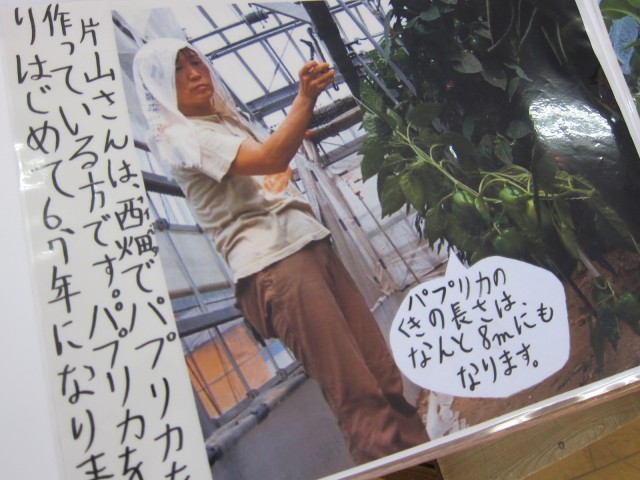 片山さんは、西畑でパプリカを
作っている方です。パプリカを
りはじめて6,7年になりま
パプリカの
くきの長さは、
なんと8mにも
なります。